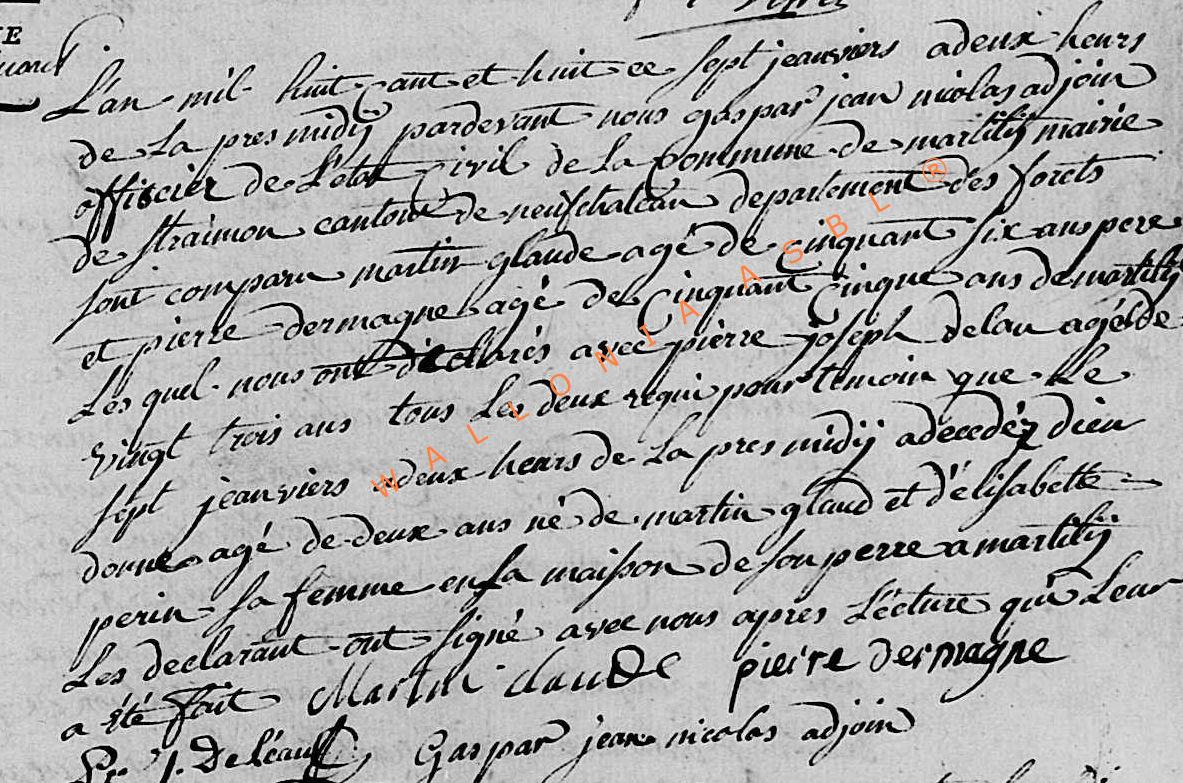 L'an mil huit cant et huit ce sept jeanviers a deux heurs
de La pres midij pardevant nous gaspar jean nicolas adjoin
officier de L'état Civil de La Commune de martilij mairie
de straimon cantont de neufchateau departement des forets
sont comparu martin glaude agé de Cinquant six ans pere
et pierre dermagne agé de Cinquant Cinque ans de martilij
Les quel nous ont déclarés avec pierre joseph delau agé de
vingt trois ans tous Les deux requi pour temoin que Le
sept jeanviers a deux heurs de La pres midij a decedéz dieu
donne agé de deux ans né de martin glaud et d'élisabette
perin sa femme en sa maison de son perre a martilij
Les declarant ont signé avec nous apres Lécture qui Leur
a été fait Martin claude pierre dermagne
Pr. J. Deléau Gaspar jean nicolas adjoin
WALLONIA ASBL ®